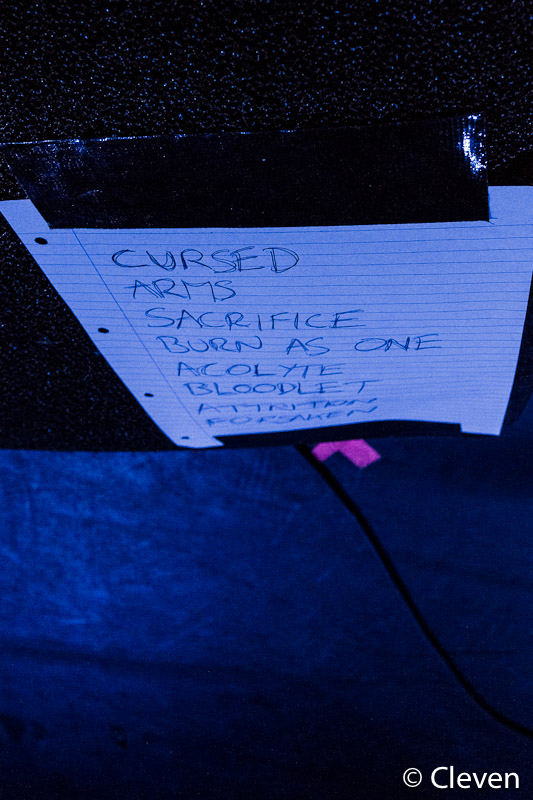 CURSED
ARMS
SACRIFICE
BURN AS ONE
ACOLYTE
BLOODLET
ATTRITION
FORSAKEN
© Cleven